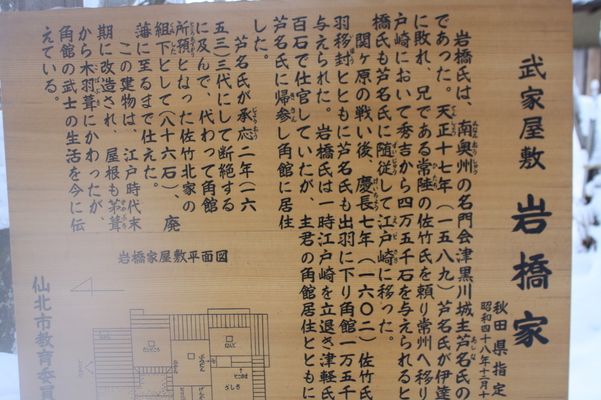 武家屋敷 岩橋家
秋田県指定
昭和四十八年十二月十
岩橋氏は、南奥州の名門会津黒川城主芦名氏の
であった。天正十七年（一五八九）芦名氏が伊達
に敗れ、兄である常陸の佐竹氏を頼り常州へ移り
戸崎において秀吉から四万五千石を与えられると
橋氏も芦名氏に随従して江戸崎に移った。
関ヶ原の戦い後、慶長七年（一六〇二）佐竹氏
羽移封とともに芦名氏も出羽に下り角館一万五千
与えられた。岩橋氏は一時江戸崎を立退き津軽氏
百石で仕官していたが、主君の角館居住とともに
芦名氏に帰参し角館に居住
した。
芦名氏が承応二年（一六
五三）三代にして断絶する
に及んで、代わって角館
所預となった佐竹北家の
組下として（八十六石）、廃
藩に至るまで仕えた。
この建物は、江戸時代末
期に改造され、屋根も茅葺
から木羽葺にかわったが、
角館の武士の生活を今に伝
えている。
岩橋家屋敷平面図
ざしき
仙北市教育委員